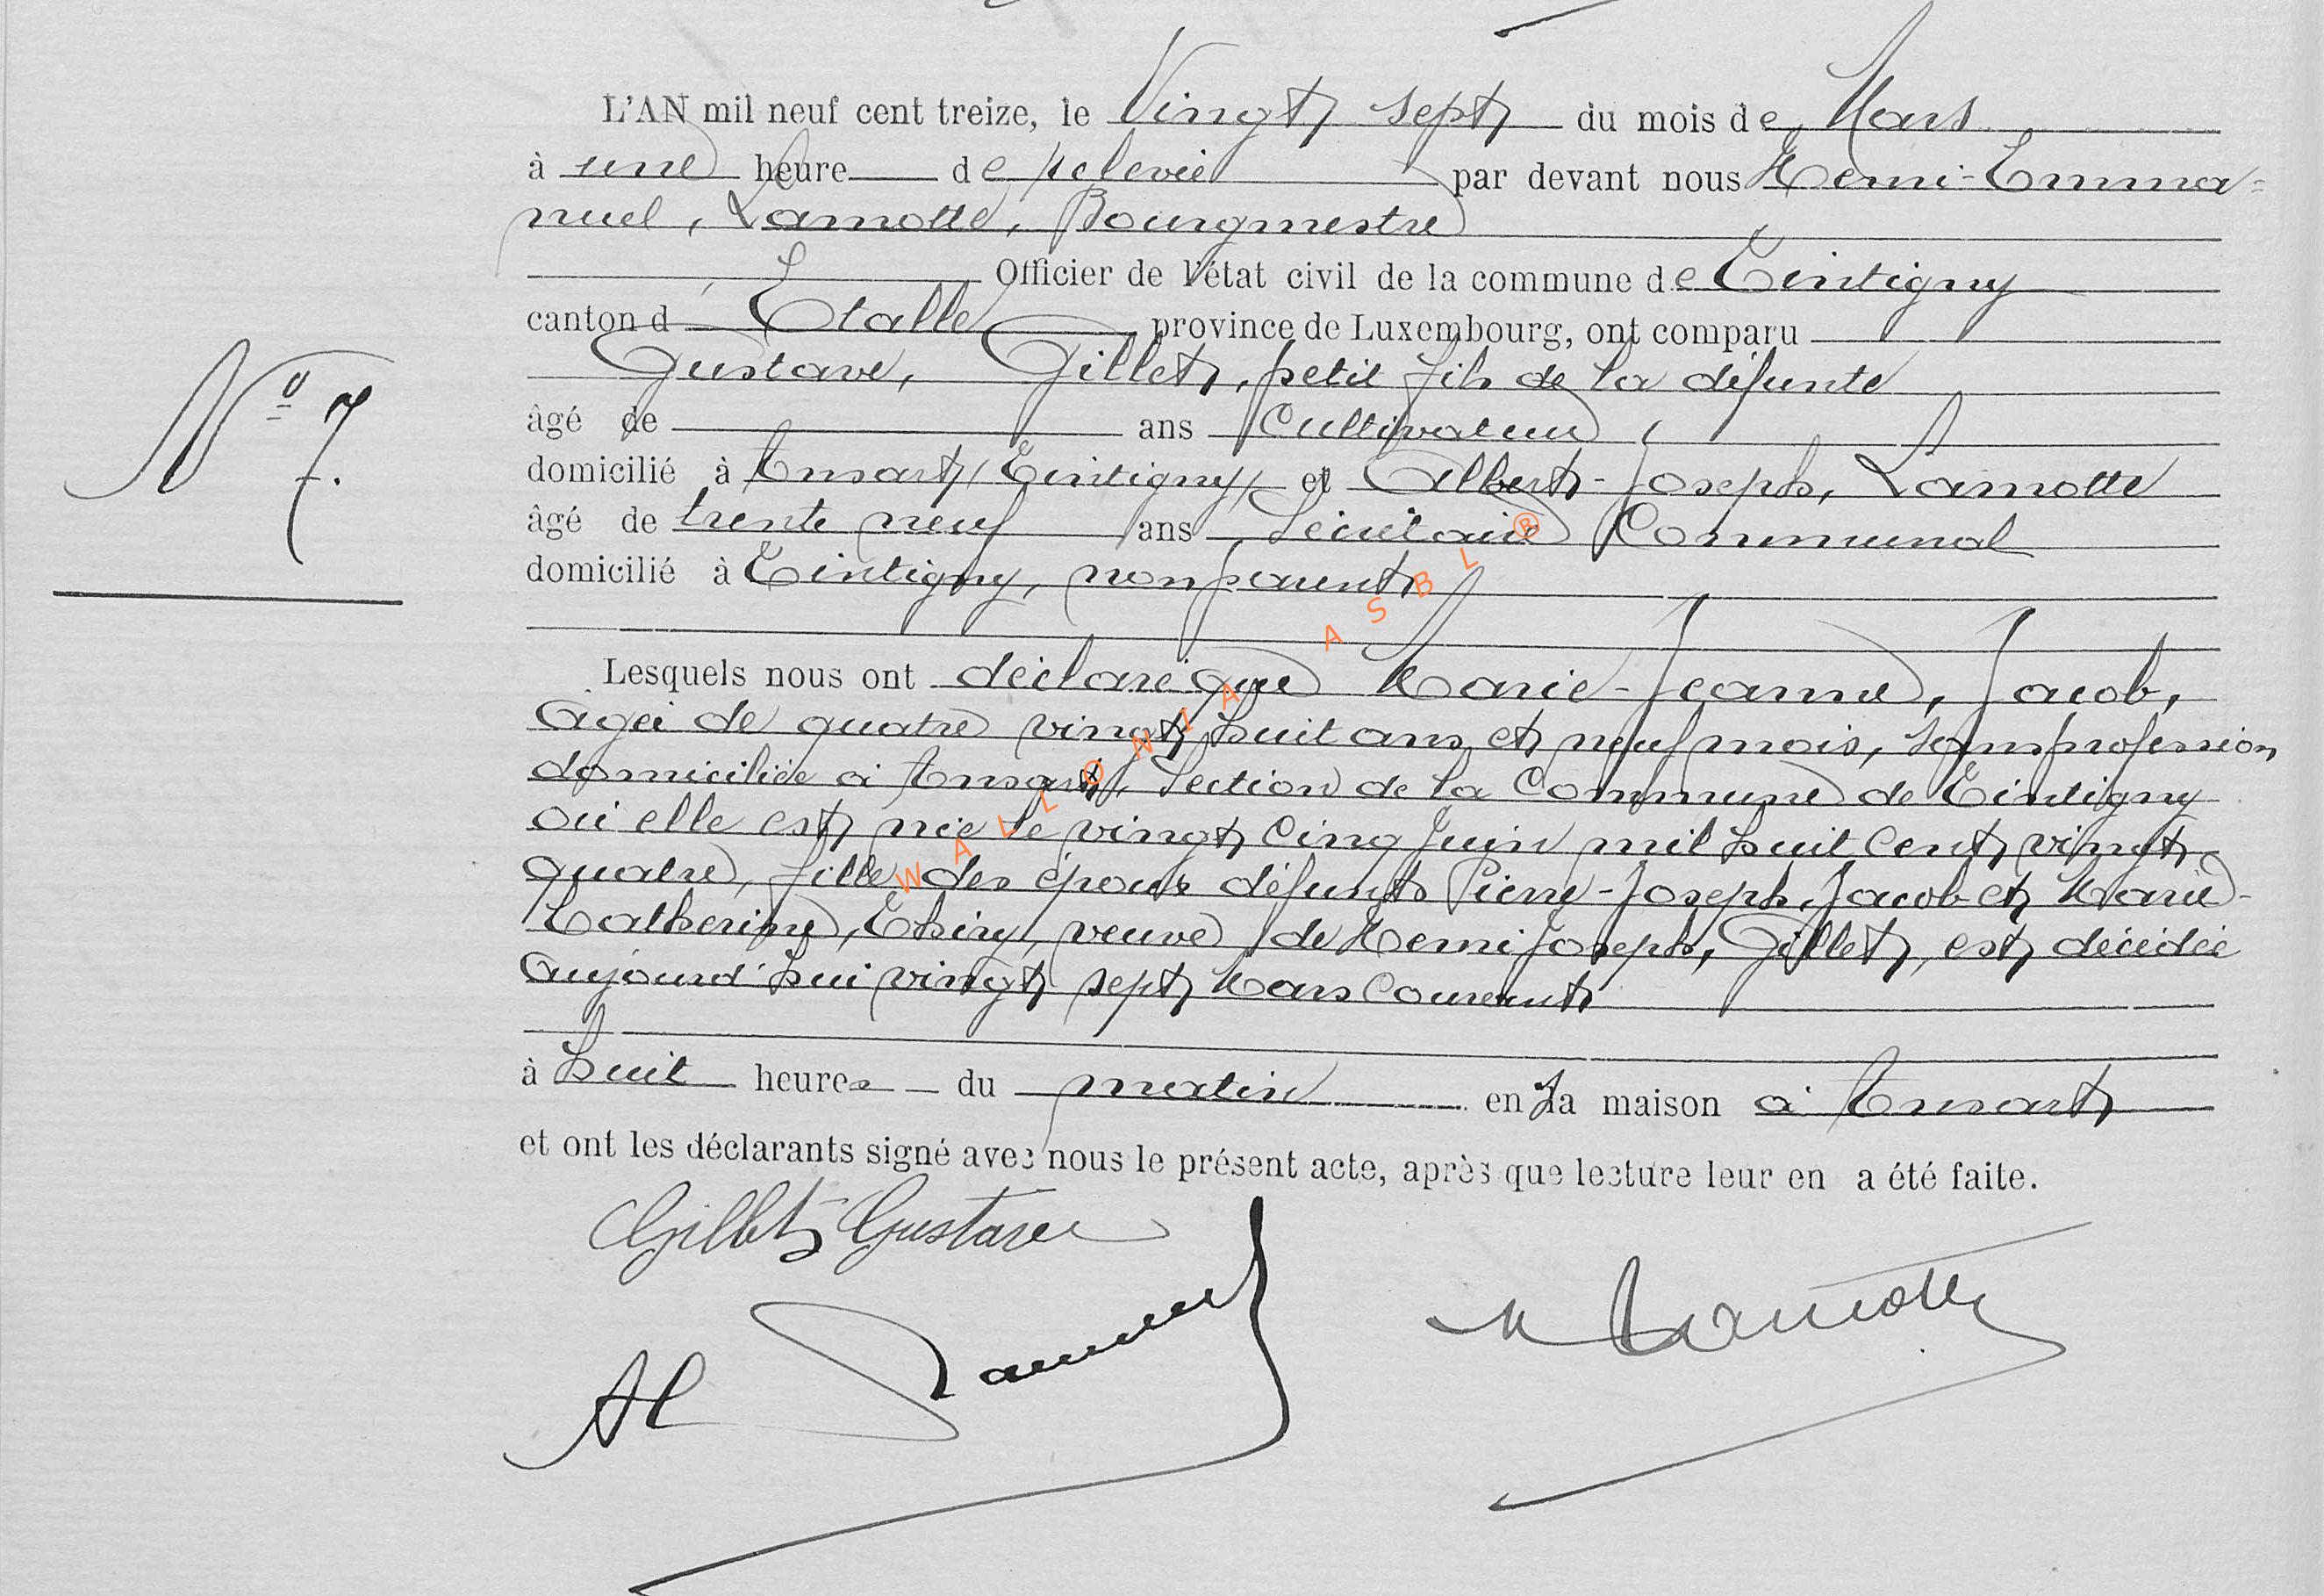 L'AN mil neuf cent treize, le Vingt sept du mois de Mars
à une heure de relevée par devant nous Henri-Emma=
nuel, Lamotte, Bourgmestre
Officier de l'état civil de la commune de Tintigny
canton d'Etalle province de Luxembourg, ont comparu
Gustave, Gillet, petit fils de la défunte
N° 7.
âgé de ans Cultivateur,
domicilié à Ansart, Tintigny, et Albert-Joseph, Lamotte
âgé de trente neuf ans Secrétaire Communal
domicilié à Tintigny, non parent
Lesquels nous ont déclaré que Marie-Jeanne, Jacob,
âgée de quatre vingt huit ans et neuf mois, sans profession
domiciliée à Ansart, Section de la Commune de Tintigny
où elle est née le vingt cinq Juin mil huit cent vingt
quatre, fille des époux défunts Pierre-Joseph, Jacob et Marie-
Catherine, Thiry, veuve de Henri Joseph, Gillet, est décédée
aujourd'hui vingt sept Mars Courant
à huit heures du matin en sa maison à Ansart
et ont les déclarants signé avec nous le présent acte, après que lecture leur en a été faite.
Gillet Gustave
Al Lamotte
H Lamotte
WALLONIA ASBL ®